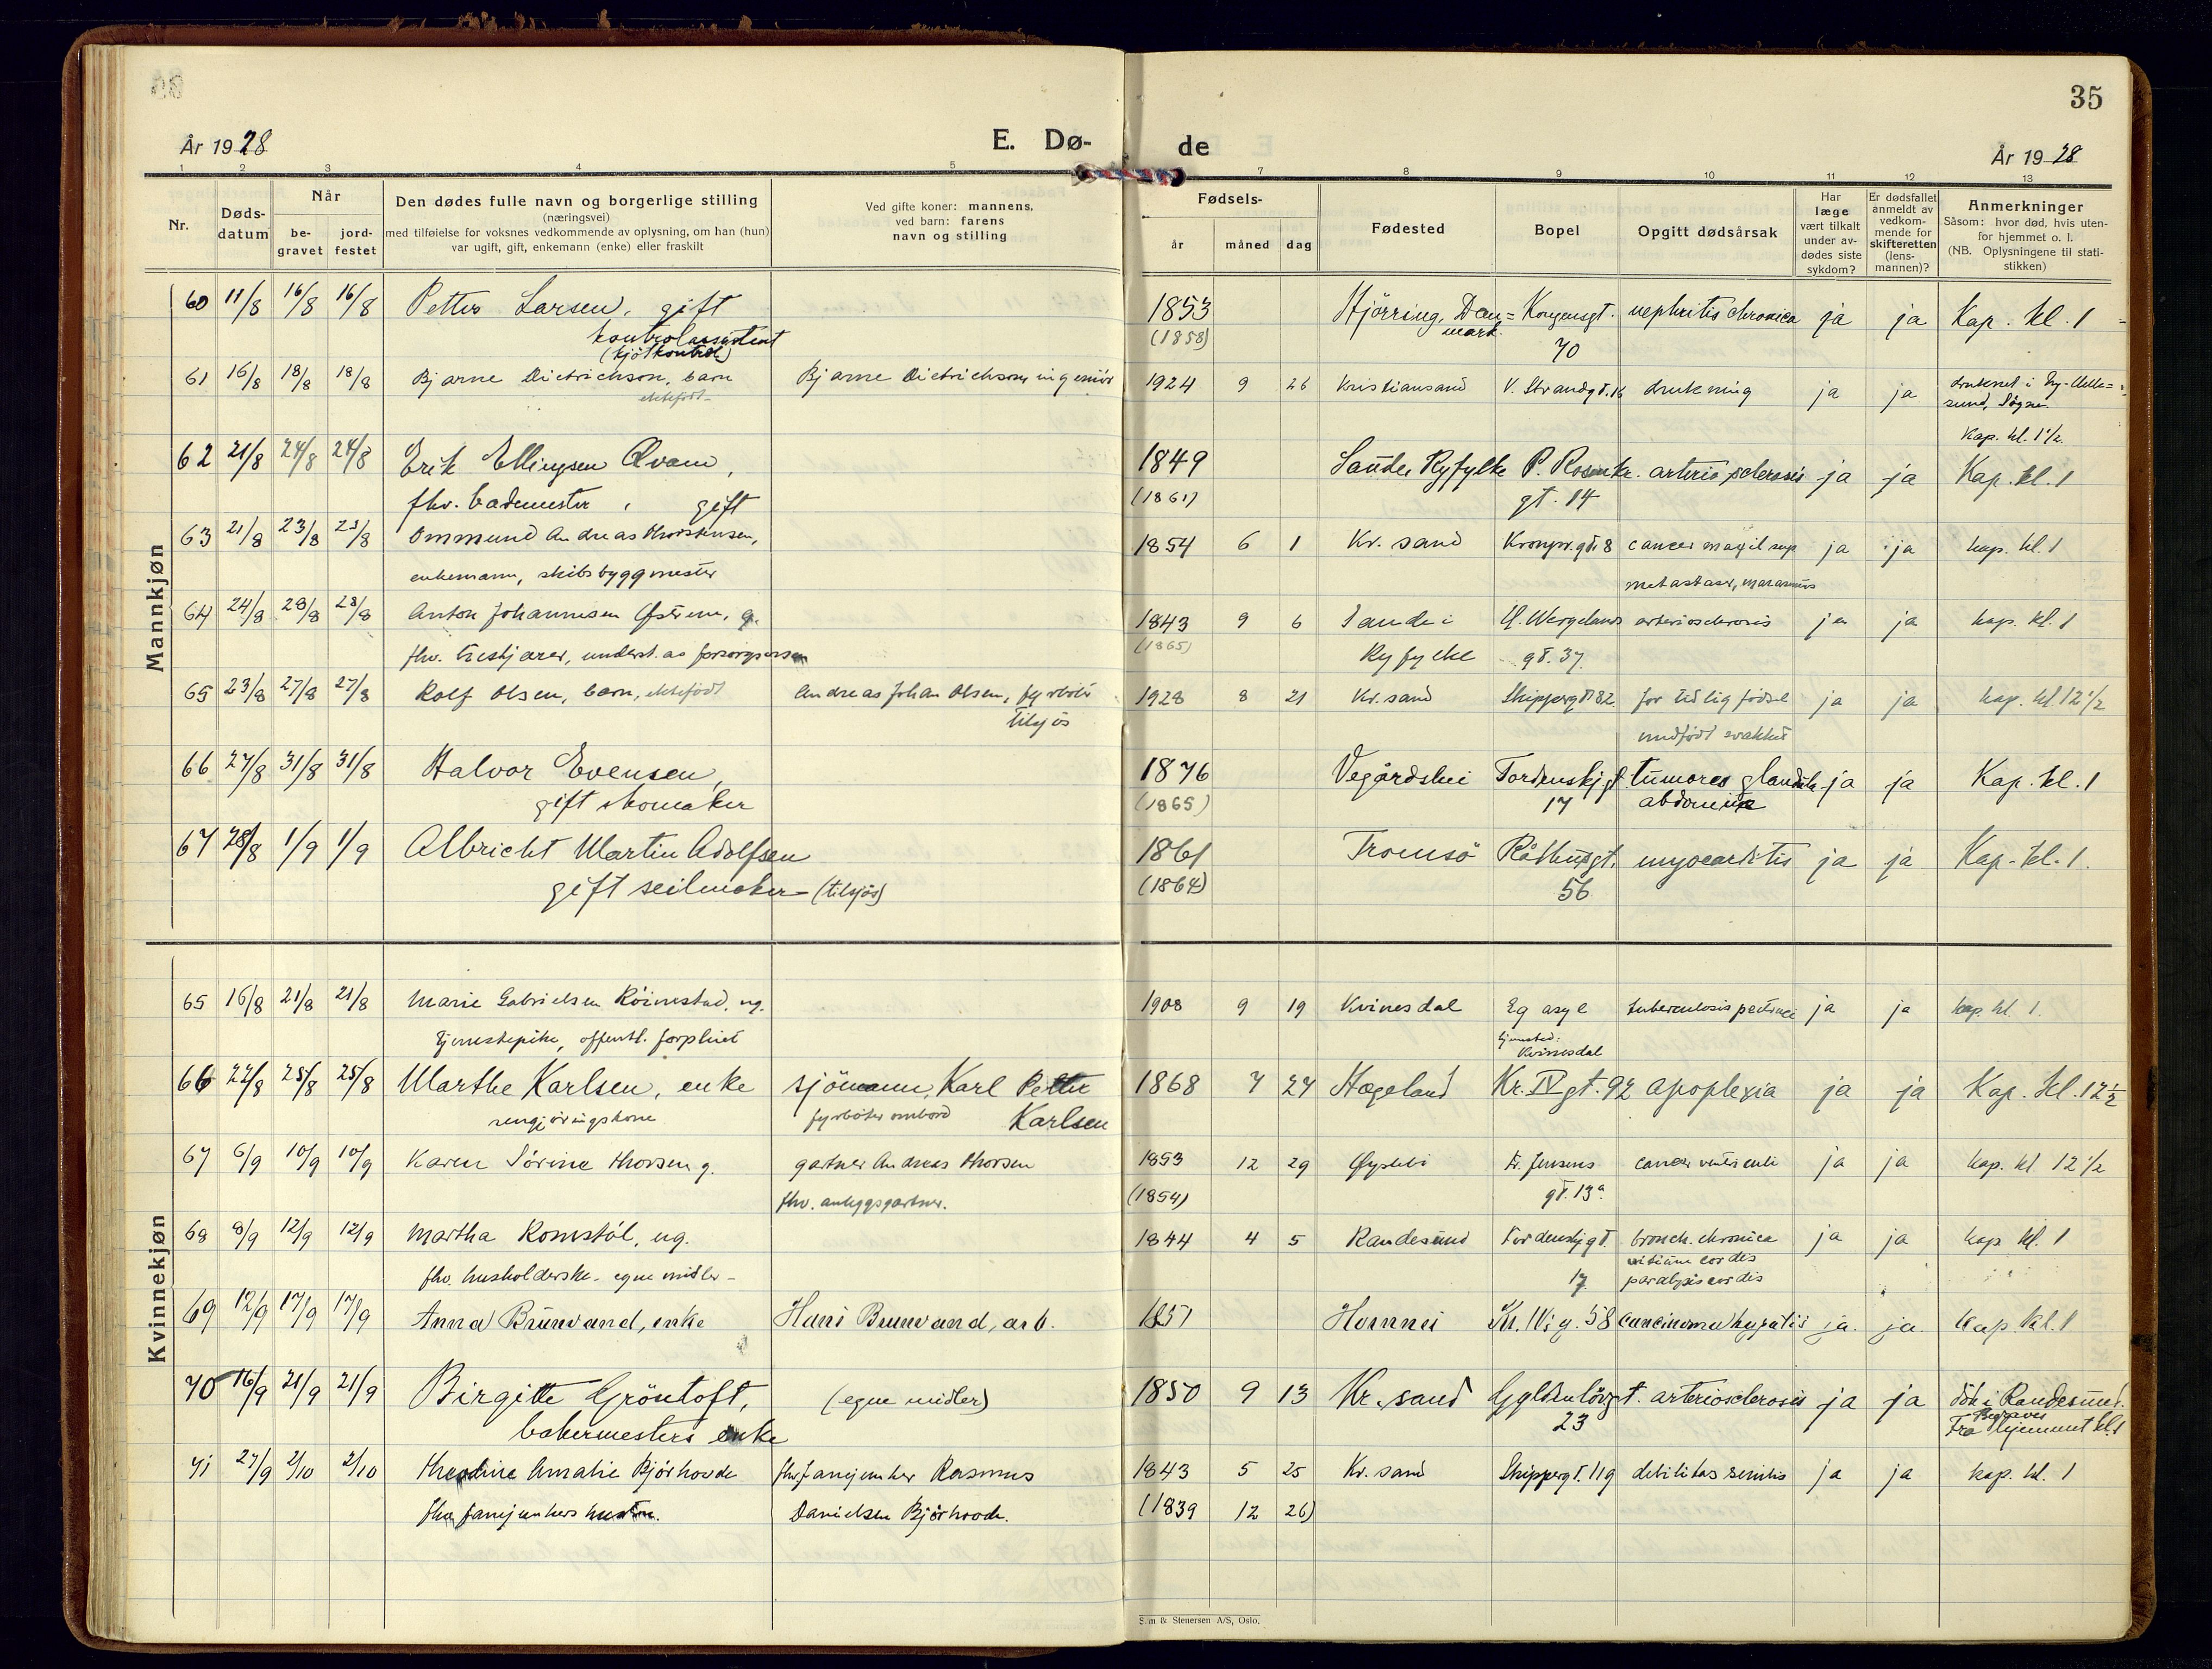 35
År 1928
E. Dø-
de
År 1928
1 2 3 4 5 7 8 9 10 11 12 13
Nr.
Døds-
datum
Når
be-
gravet
jord-
festet
Den dødes fulle navn og borgerlige stilling
(næringsvei)
med tilføielse for voksnes vedkommende av oplysning, om han (hun)
var ugift, gift, enkemann (enke) eller fraskilt
Ved gifte koner: mannens,
ved barn: farens
navn og stilling
Fødsels-
år måned dag
Fødested
Bopel
Opgitt dødsårsak
Har
læge
vært tilkalt
under av-
dødes siste
sykdom?
Er dødsfallet
anmeldt av
vedkom-
mende for
skifteretten
(lens-
mannen)?
Anmerkninger
Såsom: hvor død, hvis uten-
for hjemmet o. l.
(NB. Oplysningene til stati-
stikken)
Mannkjøn
60 11/8 16/8 16/8 Petter Larsen, gift 1853 Hjörring, Dan= Kongensgt. nephritis chronica ja ja Kap. kl. 1
kontrolassistent (1858) mark. 70
(kjötkontrol)
61 16/8 18/8 18/8 Bjarne Dietrichson, barn Bjarne Dietrichson, ingeniör 1924 9 26 Kristiansand V. Strandgt. 16 drukning ja ja druknet i Ny-Helle=
ektefödt sund, Sögne.
Kap. kl. 1 1/2
62 21/8 24/8 24/8 Erik Ellingsen Qvam, 1849 Saude, Ryfylke P. Rosenkr. arteriosclerosis ja ja Kap. kl. 1
fhv. bademester, gift (1861) gt. 14
63 21/8 23/8 23/8 Ommund Andreas Thorstensen, 1854 6 1 Kr. sand Kronpr. gt. 8 cancer maxil sup ja ja kap. kl. 1
enkemann, skibsbyggmester metastaser, marasmus
64 24/8 28/8 28/8 Anton Johannesen Østrem, g. 1843 9 6 Sande i H. Wergelands arteriosclerosis ja ja kap. kl. 1
fhv. treskjærer, underst. av forsorgsvesen (1865) Ryfylke gt. 37
65 23/8 27/8 27/8 Rolf Olsen, barn, ektefödt Andreas Johan Olsen, fyrböter 1928 8 21 Kr. sand Skippergt. 82 for tidlig födsel ja ja kap. kl 12 1/2
tilsjös medfödt svakhet
66 27/8 31/8 31/8 Halvor Evensen, 1876 Vegårdshei Tordenskj gt. tumores glandula ja ja Kap. kl. 1
gift skomaker (1865) 17 abdomin
67 28/8 1/9 1/9 Albricht Martin Adolfsen 1861 Tromsö Råthusgt. myocarditis ja ja Kap. kl. 1.
gift seilmaker (tilsjös) (1864) 56
Kvinnekjøn
65 16/8 21/8 21/8 Marie Gabrielsen Röinestad, ug. 1908 9 19 Kvinesdal Eg asyl tuberculosis ja ja kap. kl. 1.
tjenestepike, offentl. forpleiet hjemsted:
Kvinesdal
66 22/8 25/8 25/8 Marthe Karlsen, enke sjömann, Karl Petter 1868 7 27 Hægeland Kr. IV gt. 92 apoplexia ja ja Kap. kl. 12 1/2
rengjöringskone fyrböter ombord Karlsen
67 6/9 10/9 10/9 Karen Sörine Thorsen g. gartner Andreas Thorsen 1853 12 29 Øyslebö Fr. Jensens cancer ventriculi ja ja kap. kl. 12 1/2
fhv. anleggsgartner. (1854) gt. 13a
68 8/9 12/9 12/9 Martha Romstöl, ug. 1844 4 5 Randesund Tordenskj gt. bronch. chronica ja ja kap kl. 1
fhv. husholderske. egne midler 17. vitium cordis
paralysis cordis
69 12/9 17/9 17/9 Anna Brunvand, enke Hans Brunvand, arb. 1857 Homnes Kr. IV g. 58 carcinoma hepatis ja. ja. kap. kl. 1
70 16/9 21/9 21/9 Birgitte Gröntoft, (egne midler) 1850 9 13 Kr. sand Gyldenlövgt. arteriosclerosis ja ja död i Randesund.
bakermesters enke 23 Begraves
Fra hjemmet kl. 1
71 27/9 2/10 2/10 Theodine Amalie Björhovde fhv. fanejunker Rasmus 1843 5 25 Kr. sand Skippergt. 119 debilitas senilis ja ja kap. kl. 1
fhv. fanejunkers hustru. Danielsen Björhovde. (1839 12 26)
S m & Stenersen A/S, Oslo.